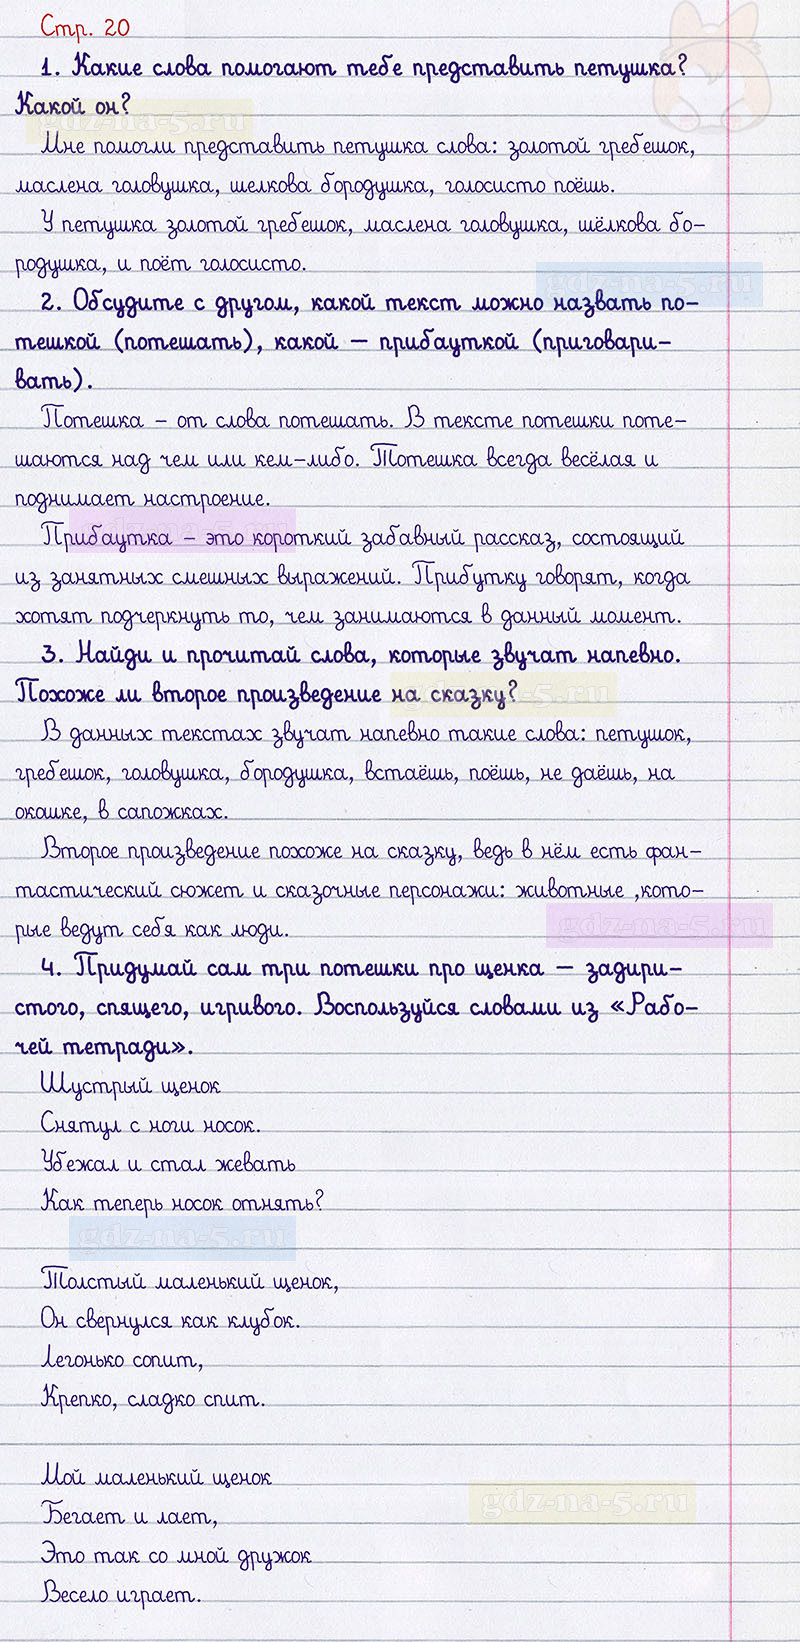 Стр. 20
1. Какие слова помогают тебе представить петушка?
Какой он?
gdz-na-5.ru
Мне помогли представить петушка слова: золотой гребешок,
маслена головушка, шелкова бородушка, голосисто поёшь.
У петушка золотой гребешок, маслена головушка, шёлкова бо-
родушка, и поёт голосисто.
gdz-na-5.ru
2. Обсудите с другом, какой текст можно назвать по-
тешкой (потешать), какой – прибауткой (приговари-
вать).
Потешка – от слова потешать. В тексте потешки поте-
шаются над чем или кем-либо. Потешка всегда весёлая и
поднимает настроение.
gdz-na-5.ru
Прибаутка – это короткий забавный рассказ, состоящий
из занятных смешных выражений. Прибутку говорят, когда
хотят подчеркнуть то, чем занимаются в данный момент.
3. Найди и прочитай слова, которые звучат напевно.
Похоже ли второе произведение на сказку?
gdz-na-5.ru
В данных текстах звучат напевно такие слова: петушок,
гребешок, головушка, бородушка, встаёшь, поёшь, не даёшь, на
окошке, в сапожках.
Второе произведение похоже на сказку, ведь в нём есть фан-
тастический сюжет и сказочные персонажи: животные ,кото-
рые ведут себя как люди.
gdz-na-5.ru
4. Придумай сам три потешки про щенка – задири-
стого, спящего, игривого. Воспользуйся словами из «Рабо-
чей тетради».
Шустрый щенок
Снятул с ноги носок.
Убежал и стал жевать
Как теперь носок отнять?
gdz-na-5.ru
Толстый маленький щенок,
Он свернулся как клубок.
Легонько сопит,
Крепко, сладко спит.
Мой маленький щенок
gdz-na-5.ru
Бегает и лает,
Это так со мной дружок
Весело играет.